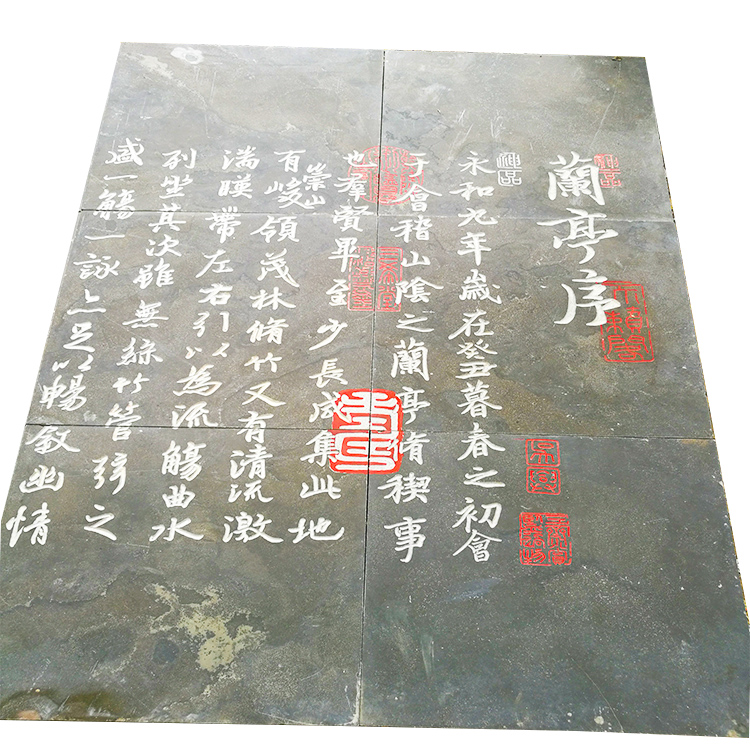 蘭亭序
神品
神品
永和九年歲在癸丑暮春之初會
于會稽山陰之蘭亭脩稧事
也羣賢畢至少長咸集此地
有崇山峻領茂林脩竹又有清流激
湍暎帶左右引以為流觴曲水
列坐其次雖無絲竹管弦之
盛一觴一詠亦足以暢敘幽情